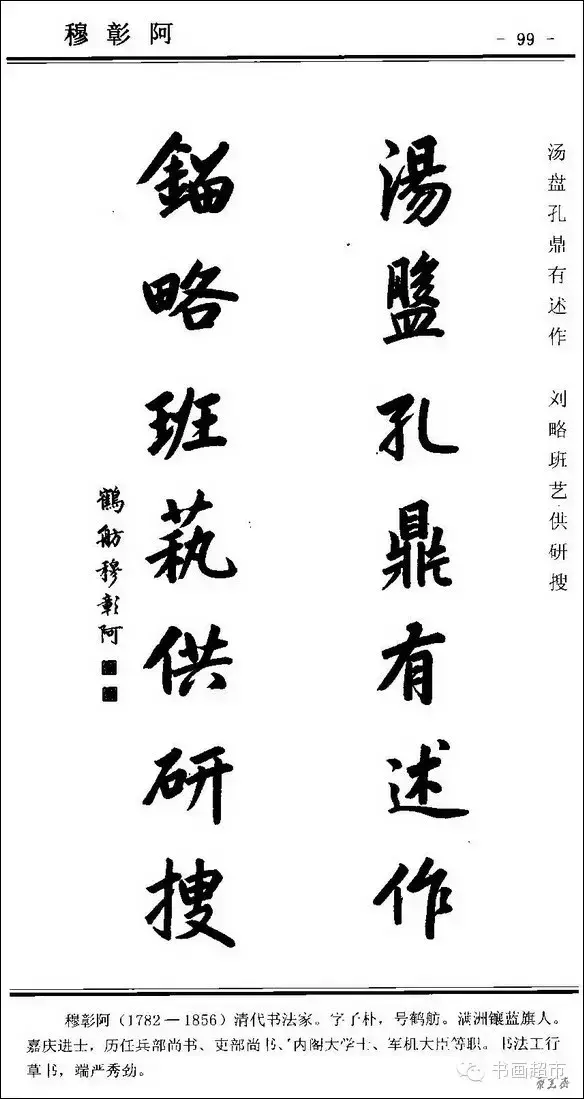 穆彰阿
- 99 -
汤盘孔鼎有述作 刘略班艺供研搜
湯盤孔鼎有述作
鎦略班藝供研搜
鶴舫穆彰阿
穆彰阿(1782—1856)清代书法家。字子朴,号鹤舫。满洲镶蓝旗人。
嘉庆进士,历任兵部尚书、吏部尚书、内阁大学士、军机大臣等职。书法工行
草书,端严秀劲。
书画超市